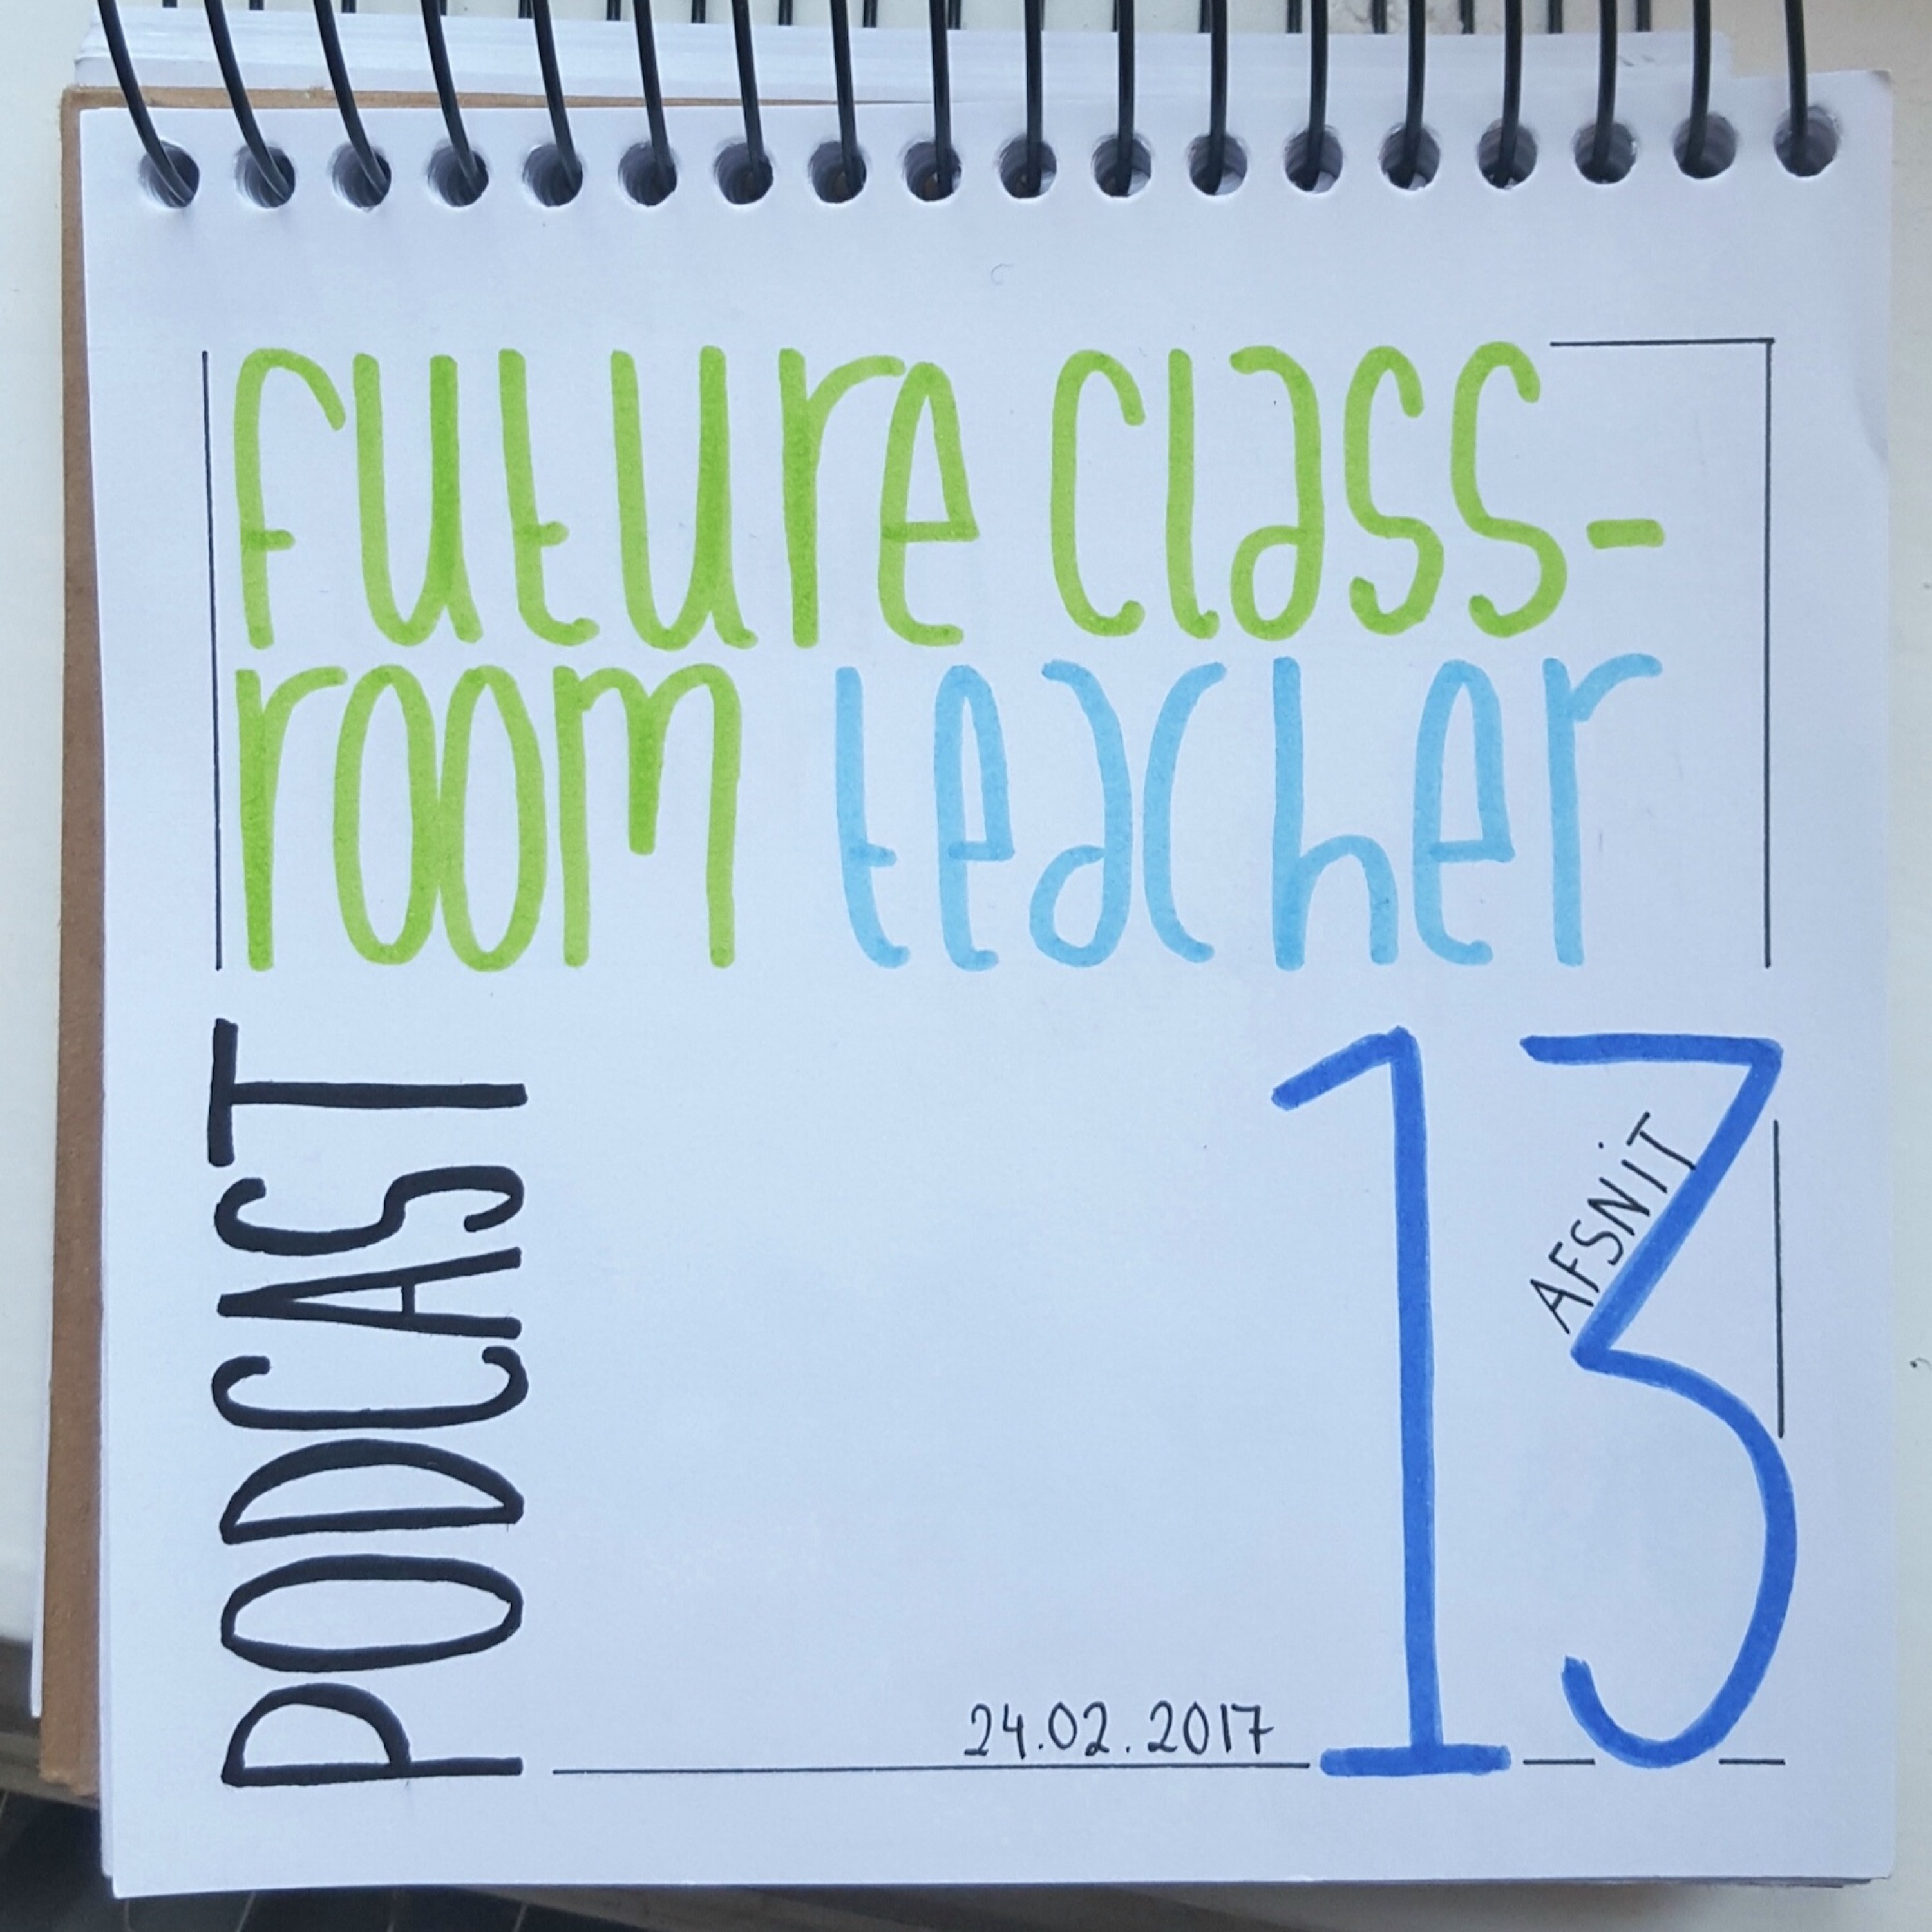 Future class-
room teacher
PODCAST
13
AFSNiT
24.02.2017